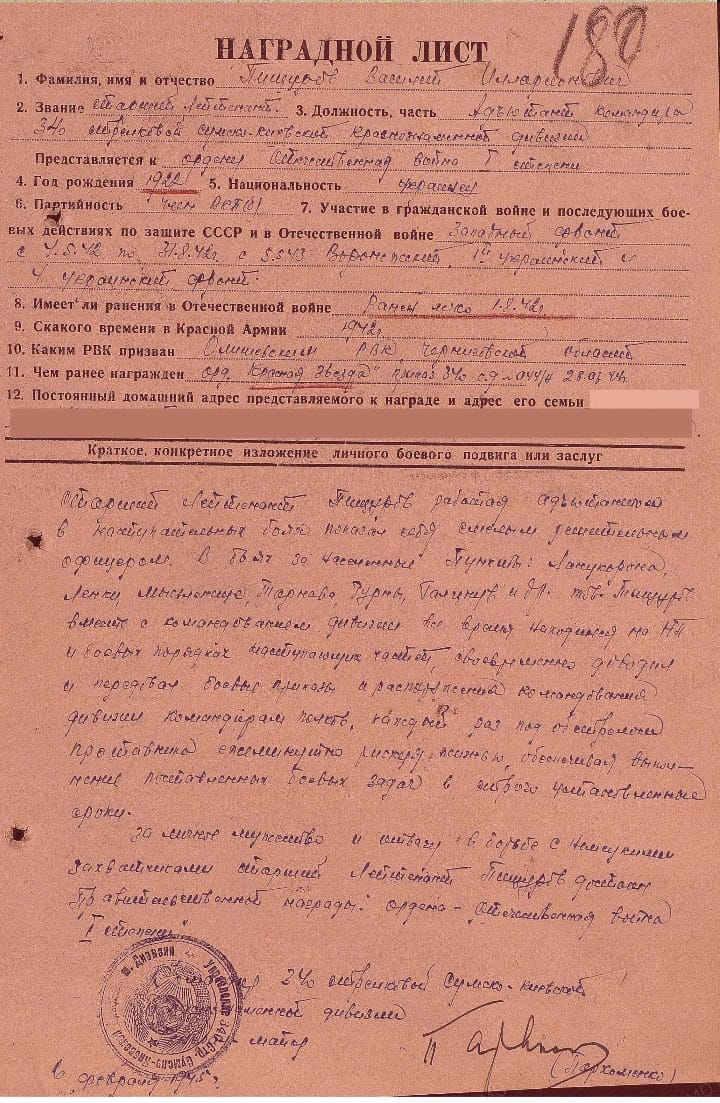 180
НАГРАДНОЙ ЛИСТ
1. Фамилия, имя и отчество Василий Илларионович
2. Звание старший лейтенант 3. Должность, часть Адъютант командира
340 стрелковой Сумско-Киевской Краснознаменной дивизии
Представляется к ордену Отечественная война I степени
4. Год рождения 1922 5. Национальность украинец
6. Партийность член ВКП(б) 7. Участие в гражданской войне и последующих бое-
вых действиях по защите СССР и в Отечественной войне Западный фронт
с 4.5.42 по 31.8.42г. с 5.5.43 Воронежский, 1й Украинский и
4 Украинский фронт.
8. Имеет ли ранения в Отечественной войне Ранен легко 1.8.42г
9. Скакого времени в Красной Армии 1942г
10. Каким РВК призван Олишевским РВК, Черниговской области
11. Чем ранее награжден орд. Красная Звезда" приказ 340 с.д
12. Постоянный домашний адрес представляемого к награде и адрес его семьи
Краткое, конкретное изложение личного боевого подвига или заслуг
Старший Лейтенант работая адъютантом
в наступательных боях показал себя смелым решительным
офицером. В боях за населенные Пункты:
и др. тов.
вместе с командованием дивизии все время находился на НП
и боевых порядках наступающих частей, своевременно доводил
и передавал боевые приказы и распоряжения командования
дивизии командирам полков, каждый раз под обстрелом
противника ежеминутно рискуя жизнью, обеспечивал выпол-
нение поставленных боевых задач в строго установленные
сроки.
За личное мужество и отвагу в борьбе с немецкими
захватчиками старший Лейтенант достоин
Правительственной награды: ордена - Отечественная война
I степени
340 стрелковой Сумско-Киевской
дивизии
майор
(Пархоменко)
февраля 1945г.